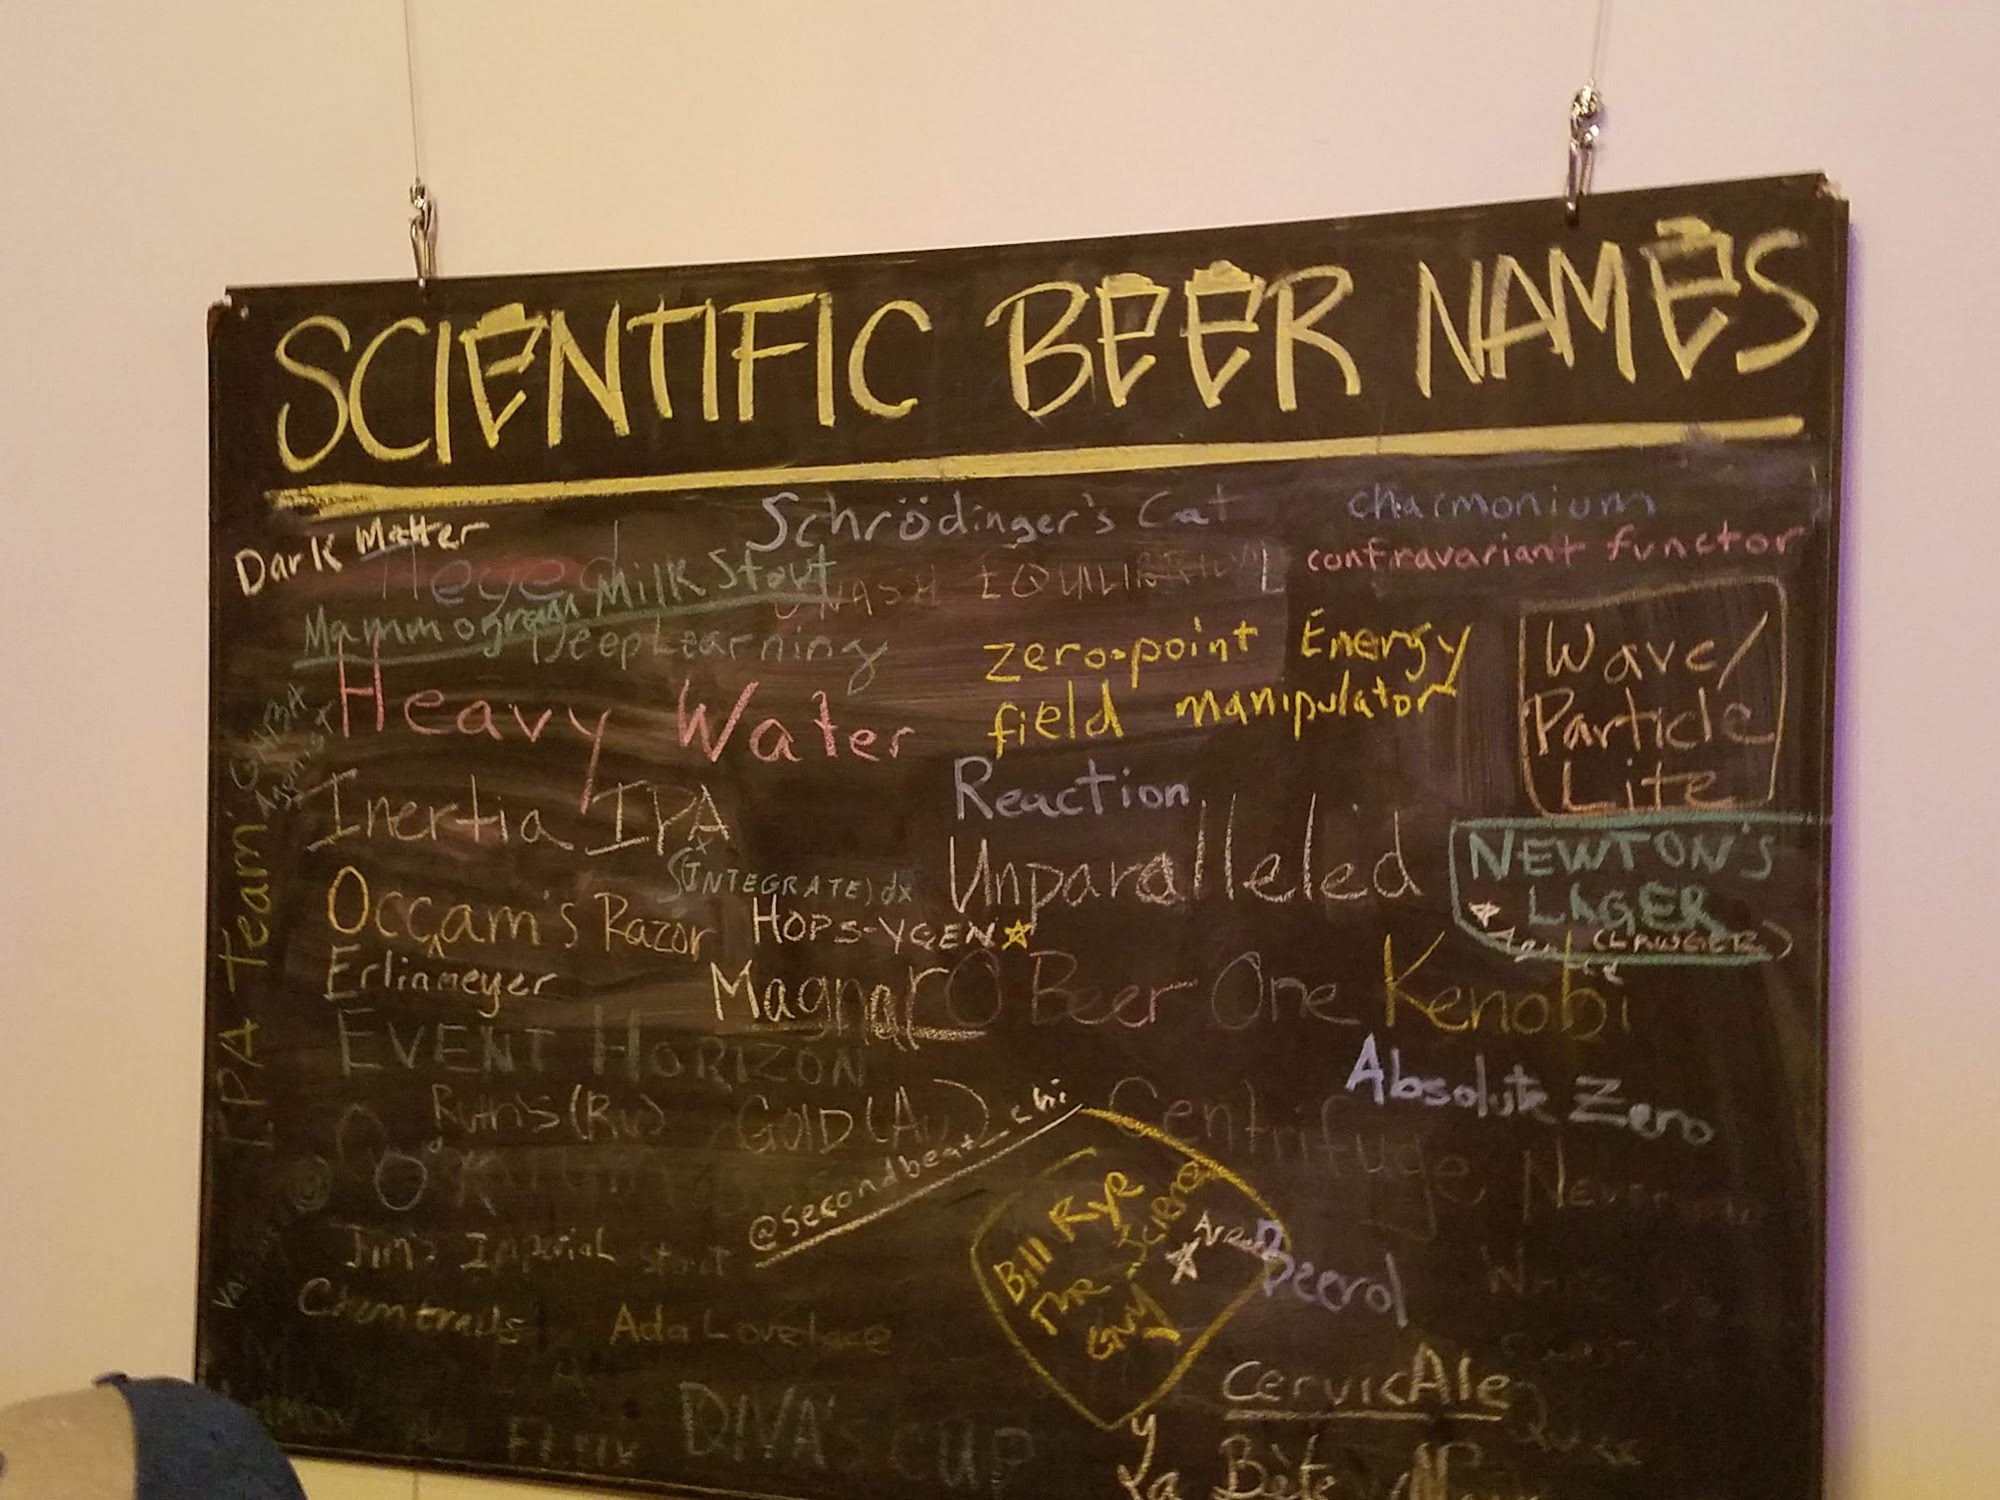 SCIENTIFIC BEER NAMES
Dark Matter
Schrödinger's Cat
charmonium
Mammogram Milk Stout
NASH EQUILIBRIUM
contravariant functor
DeepLearning
zero-point Energy
field manipulator
Wave/
Particle
Lite
Heavy Water
Reaction
Inertia IPA
Unparalleled
NEWTON'S
LAGER
(INTEGRATE) dx
Occam's Razor
HOPS-YGEN
Erlinmeyer
Magnar
O Beer One Kenobi
EVENT HORIZON
Absolute Zero
Ruth's (Ru)
GOLD (Au)
Centrifuge
@secondbeat_chi
IPA Team
Bill Rye
The Science
Guy
Beerol
Jim's Imperial Stout
Chemtrails
Ada Lovelace
CervicAle
DIVA's CUP
y
La Bète